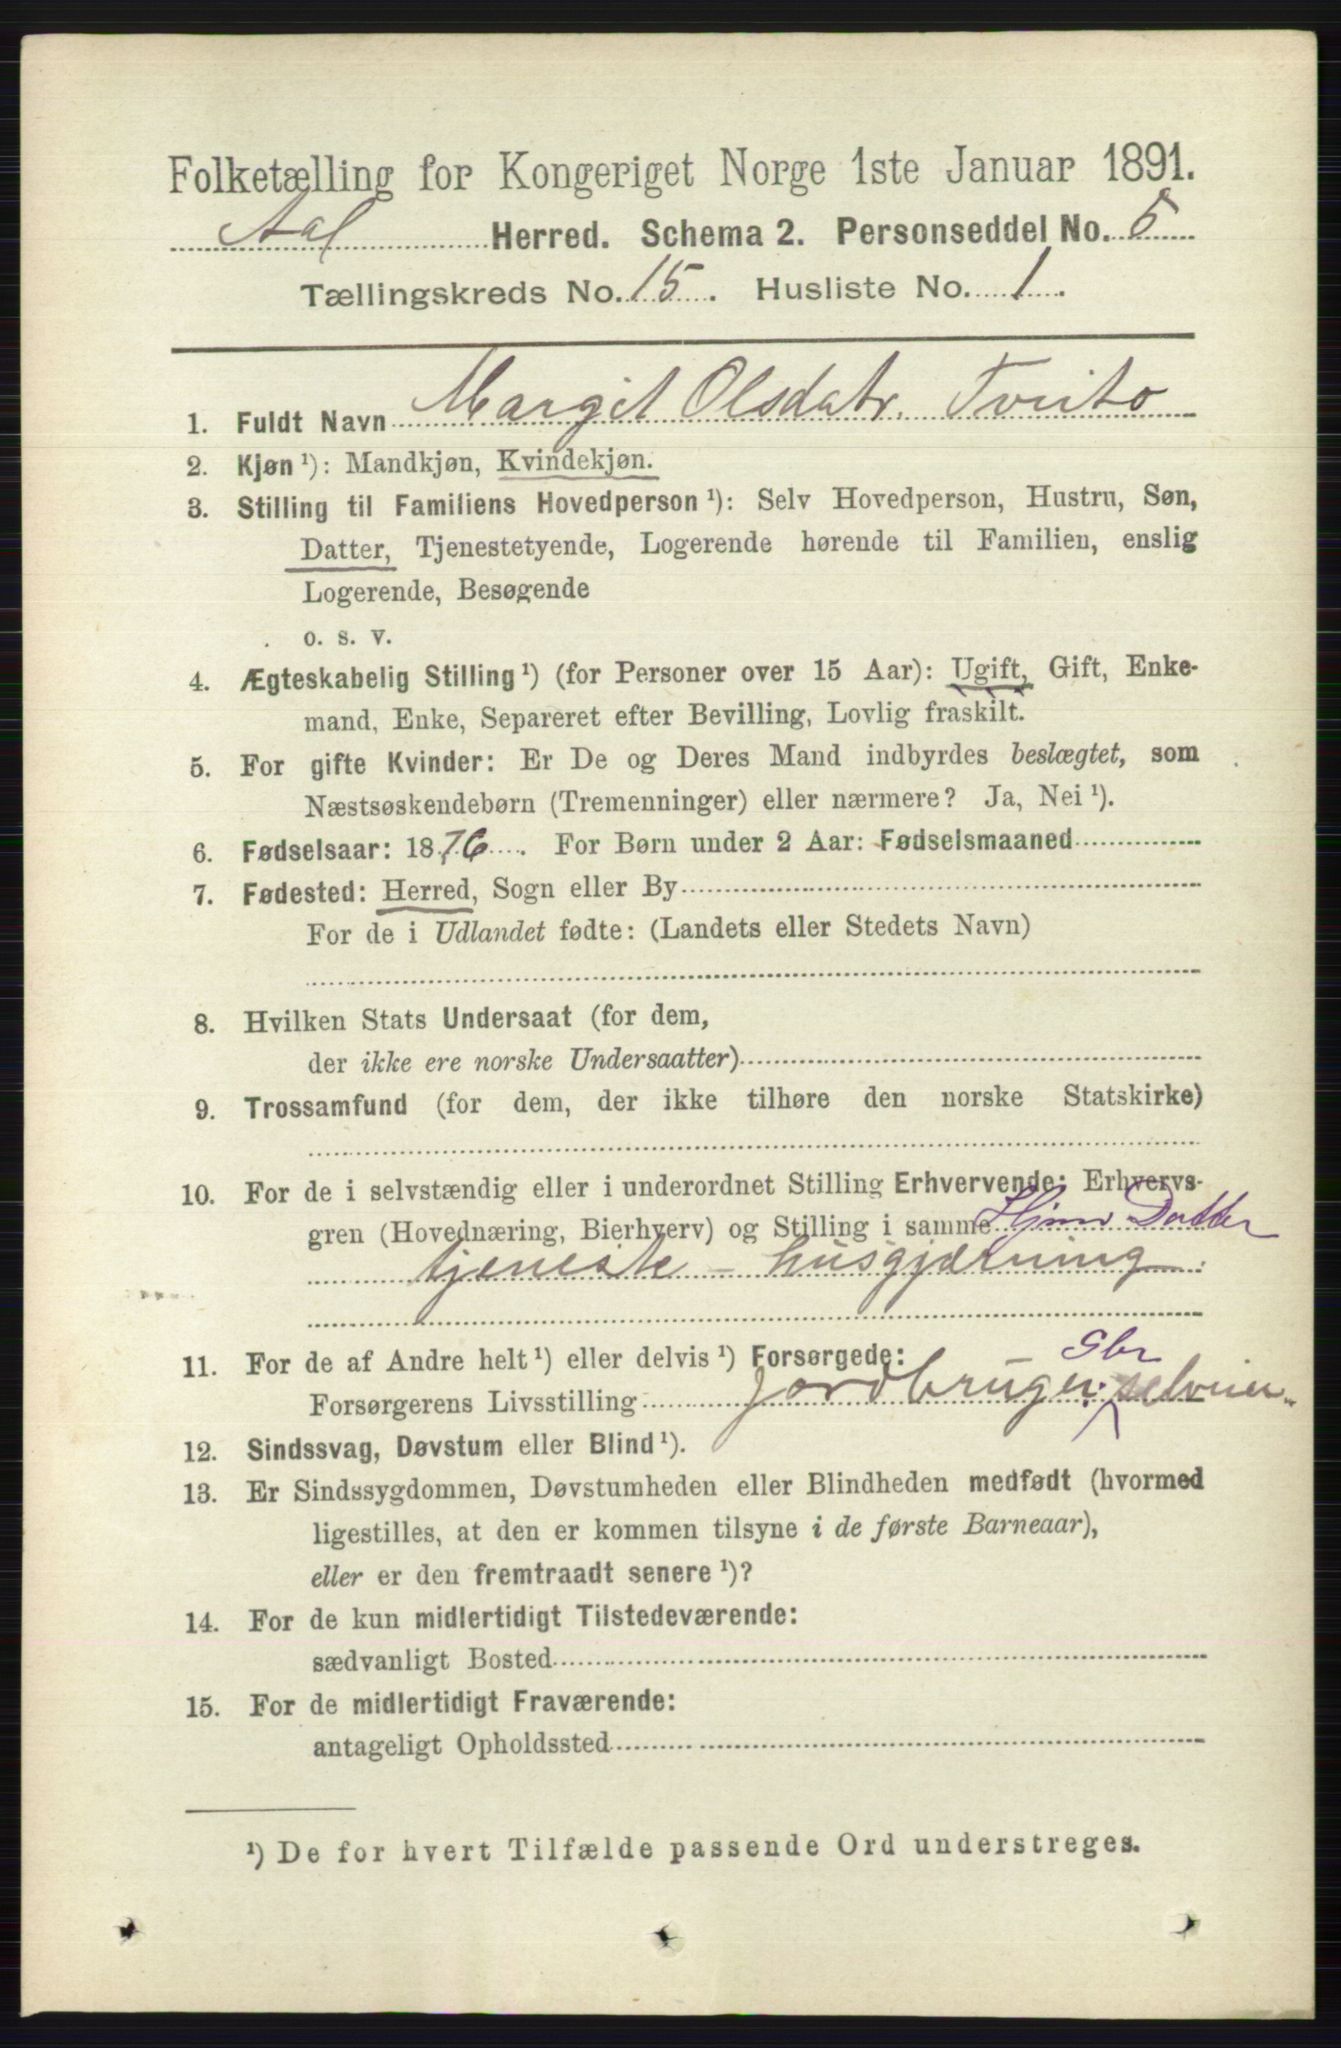 Folketælling for Kongeriget Norge 1ste Januar 1891.
Aal Herred. Schema 2. Personseddel No. 5
Tællingskreds No. 15. Husliste No. 1.
1. Fuldt Navn Margit Olsdatr. Tvito
2. Kjøn ¹): Mandkjøn, Kvindekjøn.
3. Stilling til Familiens Hovedperson ¹): Selv Hovedperson, Hustru, Søn,
Datter, Tjenestetyende, Logerende hørende til Familien, enslig
Logerende, Besøgende
o. s. v.
4. Ægteskabelig Stilling ¹) (for Personer over 15 Aar): Ugift, Gift, Enke-
mand, Enke, Separeret efter Bevilling, Lovlig fraskilt.
5. For gifte Kvinder: Er De og Deres Mand indbyrdes beslægtet, som
Næstsøskendebørn (Tremenninger) eller nærmere? Ja, Nei ¹).
6. Fødselsaar: 1876. For Børn under 2 Aar: Fødselsmaaned
7. Fødested: Herred, Sogn eller By
For de i Udlandet fødte: (Landets eller Stedets Navn)
8. Hvilken Stats Undersaat (for dem,
der ikke ere norske Undersaatter)
9. Trossamfund (for dem, der ikke tilhøre den norske Statskirke)
10. For de i selvstændig eller i underordnet Stilling Erhvervende: Erhvervs-
gren (Hovednæring, Bierhverv) og Stilling i samme Datter
tjeneste - husgjærning
11. For de af Andre helt ¹) eller delvis ¹) Forsørgede:
Gbr
Forsørgerens Livsstilling Jordbruger. selveier
12. Sindssvag, Døvstum eller Blind ¹).
13. Er Sindssygdommen, Døvstumheden eller Blindheden medfødt (hvormed
ligestilles, at den er kommen tilsyne i de første Barneaar),
eller er den fremtraadt senere ¹)?
14. For de kun midlertidigt Tilstedeværende:
sædvanligt Bosted
15. For de midlertidigt Fraværende:
antageligt Opholdssted
¹) De for hvert Tilfælde passende Ord understreges.